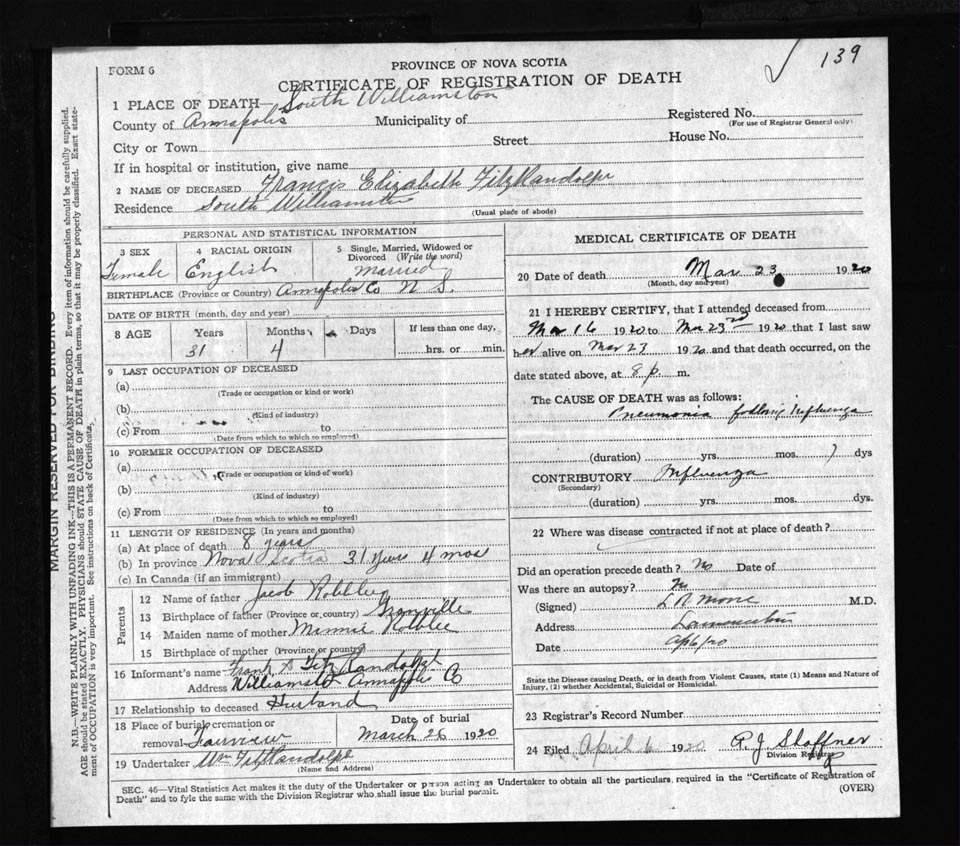 139
FORM 6
PROVINCE OF NOVA SCOTIA
CERTIFICATE OF REGISTRATION OF DEATH
1 PLACE OF DEATH— South Williamston
County of Annapolis Municipality of Registered No.
(For use of Registrar General only)
City or Town Street House No.
If in hospital or institution, give name
2 NAME OF DECEASED Francis Elizabeth FitzRandolph
Residence South Williamston
(Usual place of abode)
PERSONAL AND STATISTICAL INFORMATION
3 SEX 4 RACIAL ORIGIN 5 Single, Married, Widowed or Divorced (Write the word)
Female English Married
BIRTHPLACE (Province or Country) Annapolis Co N S.
DATE OF BIRTH (month, day and year)
8 AGE Years Months Days If less than one day,
31 4 hrs. or min.
9 LAST OCCUPATION OF DECEASED
(a)
(Trade or occupation or kind or work)
(b)
(Kind of industry)
(c) From to
(Date from which to which so employed)
10 FORMER OCCUPATION OF DECEASED
(a)
(Trade or occupation or kind of work)
(b)
(Kind of industry)
(c) From to
(Date from which to which so employed)
11 LENGTH OF RESIDENCE (In years and months)
(a) At place of death 8 years
(b) In province Nova Scotia 31 years 4 mos
(c) In Canada (if an immigrant)
Parents
12 Name of father Jacob
13 Birthplace of father (Province or country) Granville
14 Maiden name of mother Minnie
15 Birthplace of mother (Province or country)
16 Informant's name Frank FitzRandolph
Address Williamston Annapolis Co
17 Relationship to deceased Husband
18 Place of burial, cremation or Date of burial
removal Fairview March 26 1920
19 Undertaker Wm FitzRandolph
(Name and Address)
MEDICAL CERTIFICATE OF DEATH
20 Date of death Mar 23 1920
(Month, day and year)
21 I HEREBY CERTIFY, that I attended deceased from
Mar 16 1920 to Mar 23rd 1920 that I last saw
her alive on Mar 23 1920 and that death occurred, on the
date stated above, at 8 p. m.
The CAUSE OF DEATH was as follows:
Pneumonia following Influenza
(duration) yrs. mos. 7 dys
CONTRIBUTORY Influenza
(Secondary)
(duration) yrs. mos. dys.
22 Where was disease contracted if not at place of death?
Did an operation precede death? No Date of
Was there an autopsy? No
(Signed) L R Morse M.D.
Address Lawrencetown
Date
State the Disease causing Death, or in death from Violent Causes, state (1) Means and Nature of
Injury, (2) whether Accidental, Suicidal or Homicidal.
23 Registrar's Record Number
24 Filed April 6 1920 Shaffner
Division Registrar
SEC. 46—Vital Statistics Act makes it the duty of the Undertaker or person acting as Undertaker to obtain all the particulars required in the "Certificate of Registration of
Death" and to fyle the same with the Division Registrar who shall issue the burial permit.
(OVER)
MARGIN RESERVED FOR BINDING
N.B.—WRITE PLAINLY WITH UNFADING INK—THIS IS A PERMANENT RECORD. Every item of information should be carefully supplied.
AGE should be stated EXACTLY. PHYSICIANS should STATE CAUSE OF DEATH in plain terms, so that it may be properly classified. Exact state-
ment of OCCUPATION is very important. See instructions on back of Certificate.